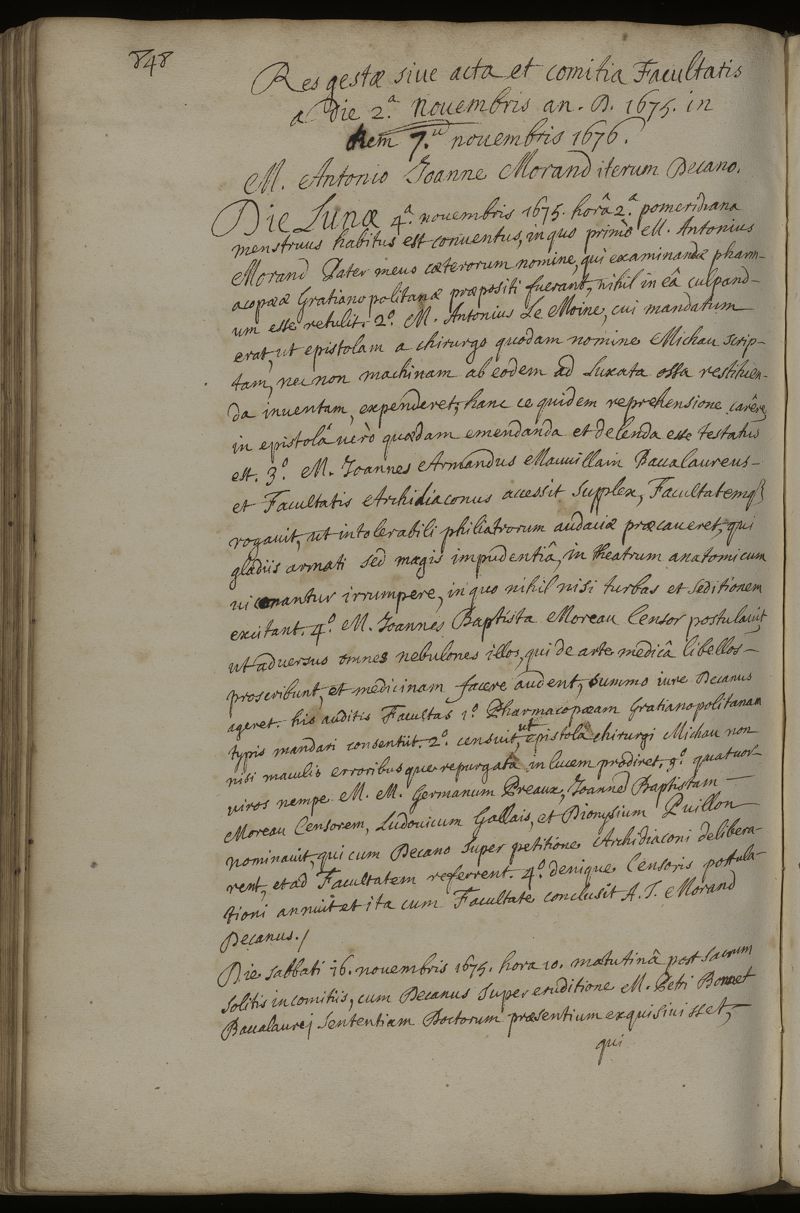 848
Res gestæ siue acta et comitia Facultatis
a Die 2.a Nouembris an. D. 1675. in
diem 7.um nouembris 1676.
M. Antonio Joanne Morand iterum Decano.
Die Lunæ 4.a nouembris 1675. horâ 2.a pomeridiana
menstruus habitus est conuentus, in quo primò M. Antonius
Morand Pater meus cæterorum nomine, qui examinandæ pharm-
acopææ Gratianopolitanæ præpositi fuerant, nihil in eâ culpand-
um esse retulit. 2.o M. Antonius Le Moine, cui mandatum
erat, ut epistolam a chirurgo quodam nomine Michau scrip-
tam, nec non machinam ab eodem ad Luxata ossa restituen-
da inuentam, expenderet, hanc ce quidem reprehensione carêre,
in epistolâ uerò quædam emendanda et delenda esse testatus
est. 3.o M. Joannes Armandus Mauuillain Baccalaureus
et Facultatis Archidiaconus accessit supplex, Facultatemq3
rogauit, ut intolerabili philiatrorum audaciæ præcaueret, qui
gladiis armati sed magis impudentiâ, in theatrum anatomicum
ui conantur irrumpere, in quo nihil nisi turbas et seditionem
excitant. 4.o M. Joannes Baptista Moreau Censor postulauit
ut aduersus omnes nebulones illos, qui de arte medicâ libellos
proscribunt, et medicinam facere audent, summo iure Decanus
ageret. his auditis Facultas 1.o Pharmacopæam Gratianopolitanam
typis mandari consentiit. 2.o censuit, ut epistola chirurgi Michau non
nisi maculis erroribusque repurgata in lucem prodiret. 3.o quatuor
uiros nempe M. M. Germanum Preaux, Joannem Baptistam
Moreau Censorem, Ludouicum Gallais, et Dionysium Puillon
nominauit, qui cum Decano super petitione Archidiaconi delibera-
rent, et ad Facultatem referrent. 4.o denique Censoris postula-
tioni annuit et ita cum Facultate conclusit A. J. Morand
Decanus./
Die sabbati 16. nouembris 1675. hora 10. matutinâ post sacrum
solitis in comitiis, cum Decanus super eruditione M. Petri Bonnet
Baccalaurej sententiam Doctorum præsentium exquisiuisset,
qui